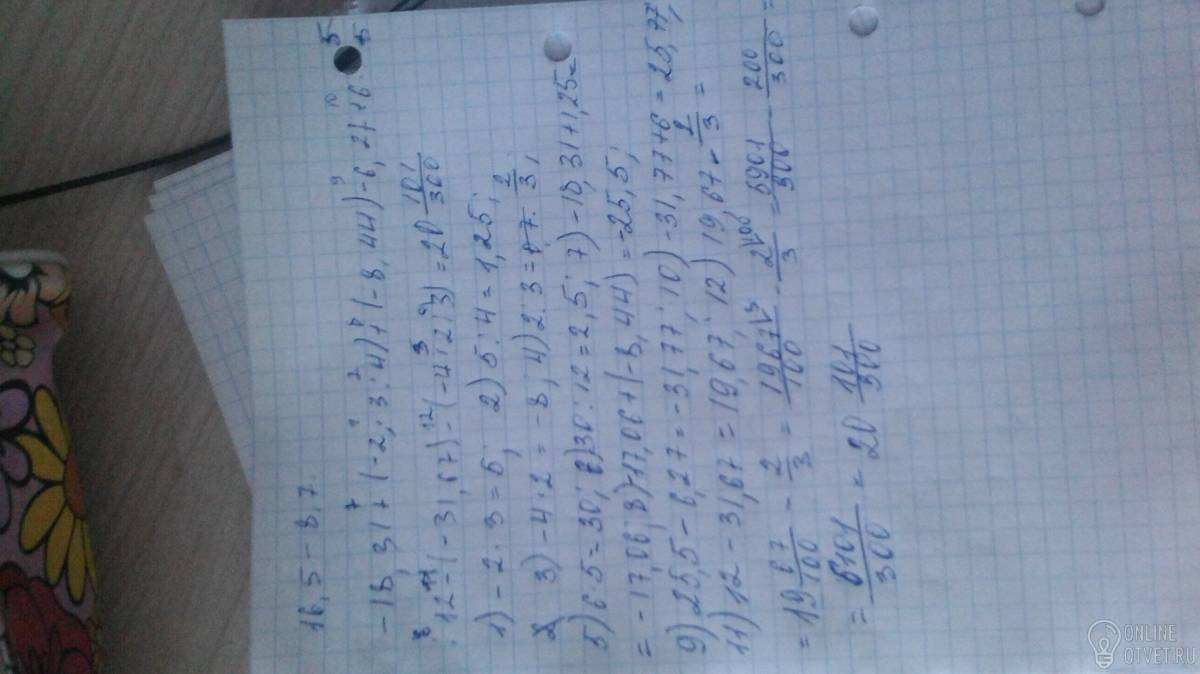 16,5 - 8,7.
-18,31 + (-2 : 3 : 4) + (-8,44) - 6,27 + 6 · 5
: 12 - (-31,67) - (-4 : 2 : 3) = 20 101/300
1) -2 · 3 = 5; 2) 5 : 4 = 1,25;
3) -4 · 2 = -8; 4) 2 : 3 = 2/3;
5) 6·5 = 30; 6) 30 : 12 = 2,5; 7) -18,31 + 1,25 =
= -17,06; 8) -17,06 + (-8,44) = -25,5;
9) 25,5 - 6,27 = -31,77; 10) -31,77 + 6 = 25,77;
11) 12 - 31,67 = 19,67; 12) 19,67 - 2/3 =
= 19 67/100 - 2/3 = 1967/100 - 2/3 = 5901/300 - 200/300 =
= 6101/300 = 20 101/300
ONLINE
OTVET.RU